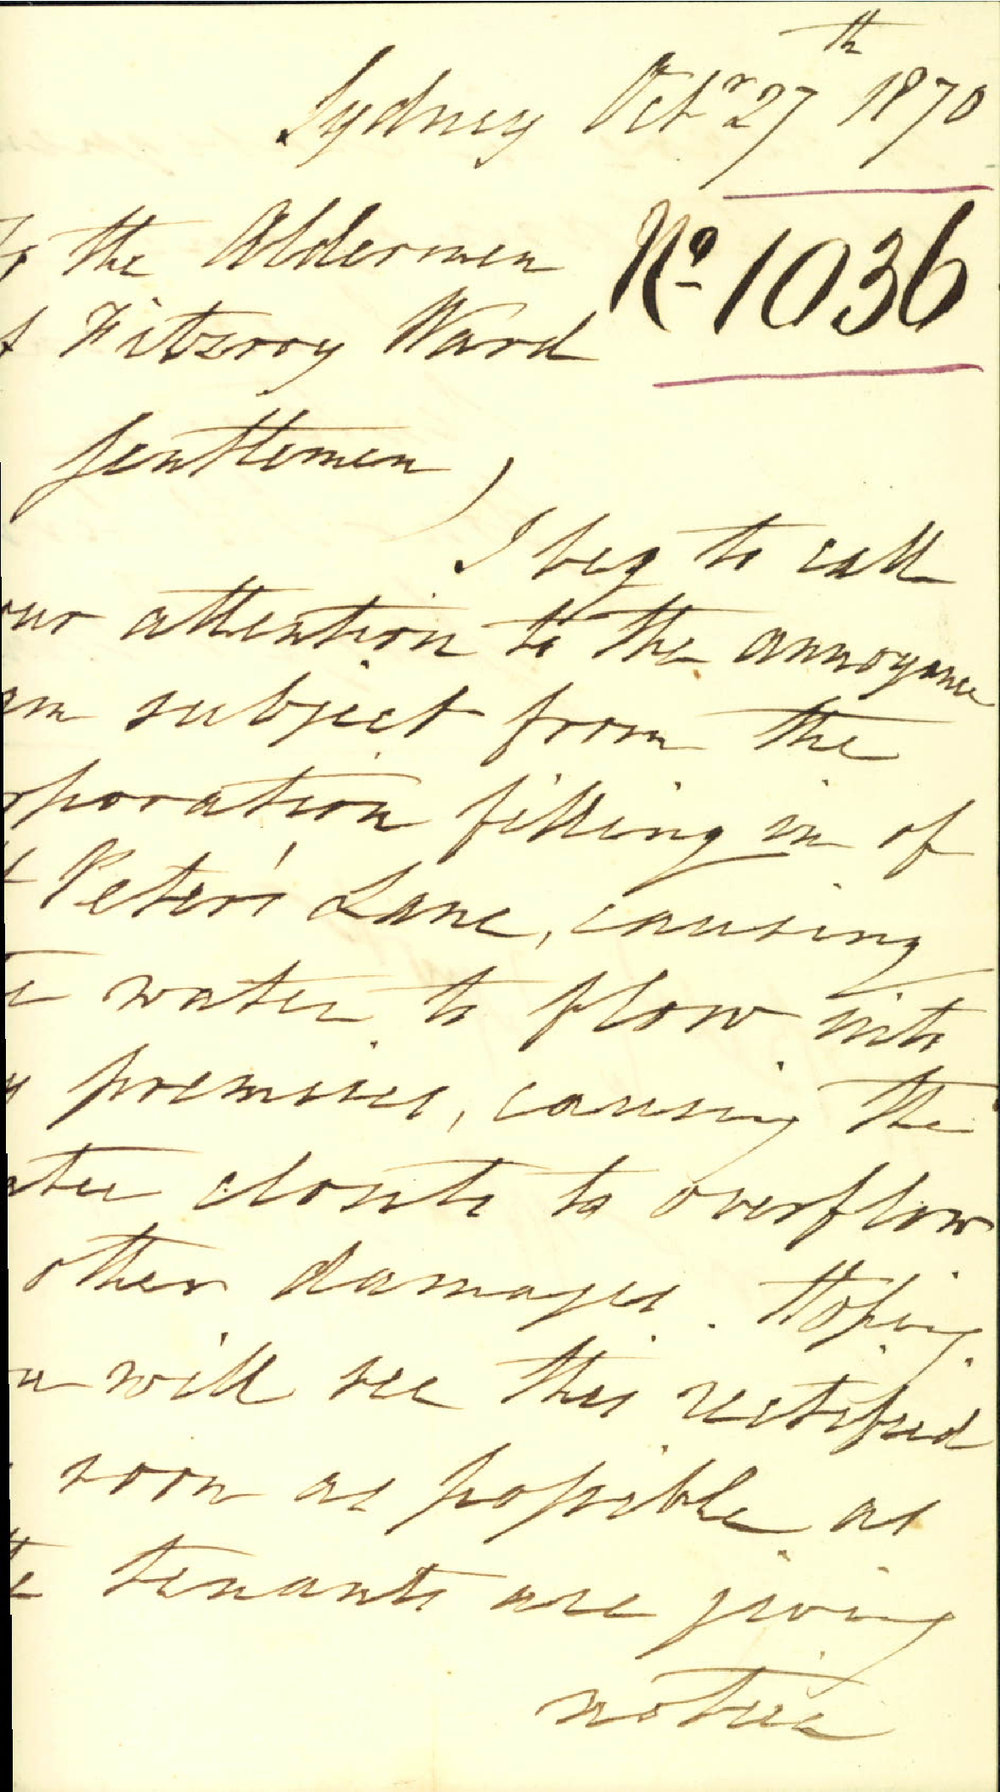 Sydney Octr 27th 1870
To the Aldermen
No 1036
of Fitzroy Ward
Gentlemen,
I beg to call
our attention to the annoyance
am subject from the
rporation filling in of
t Peter's Lane, causing
e water to flow into
y premises, causing the
ater closets to overflow
other damages. Hoping
u will see this rectified
soon as possible as
the tenants are giving
notice